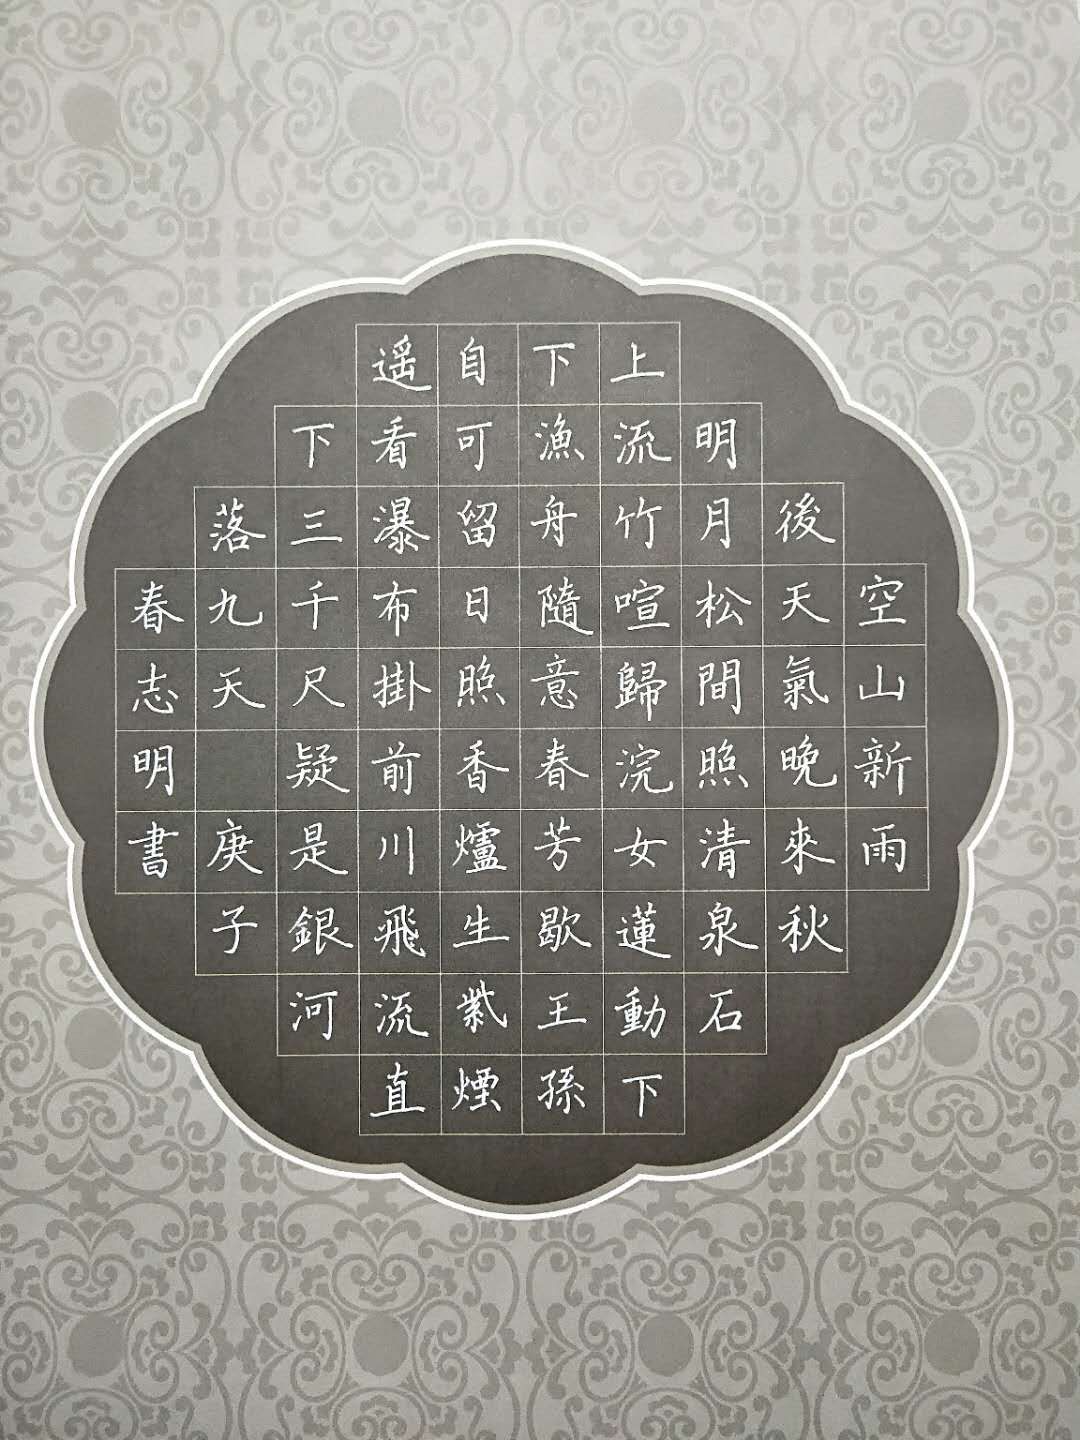 空山新雨
後天氣晚來秋
明月松間照清泉石
上流竹喧歸浣女蓮動下
下漁舟隨意春芳歇王孫
自可留日照香爐生紫煙
遥看瀑布掛前川飛流直
下三千尺疑是銀河
落九天庚子
春志明書